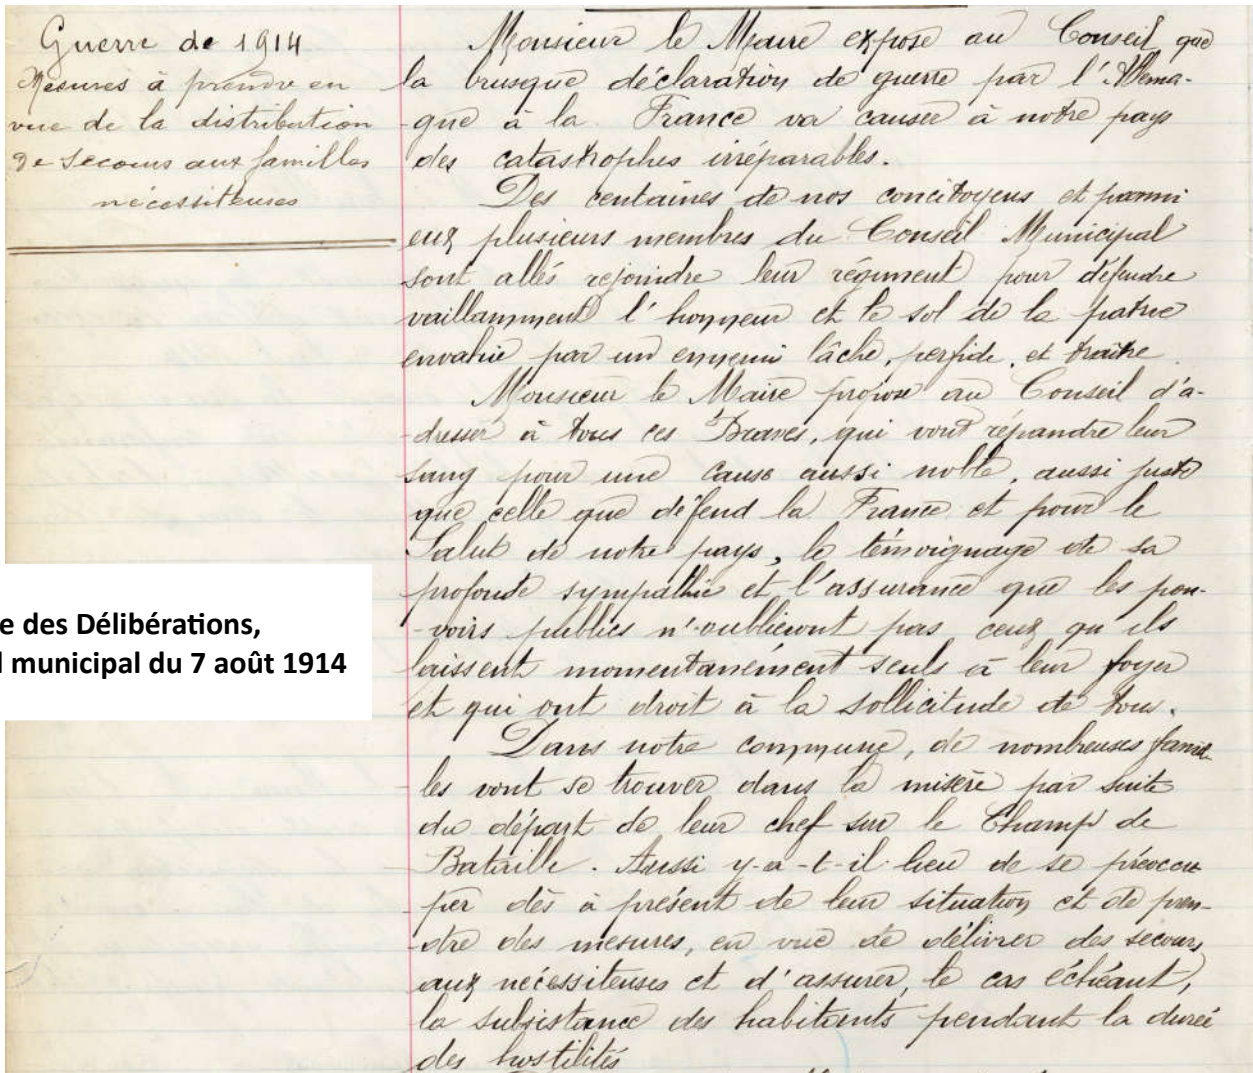 Guerre de 1914
Mesures à prendre en
vue de la distribution
de secours aux familles
nécessiteuses
Monsieur le Maire expose au Conseil que
la brusque déclaration de guerre par l'Allema-
-gne à la France va causer à notre pays
des catastrophes irréparables.
Des centaines de nos concitoyens et parmi
eux plusieurs membres du Conseil Municipal
sont allés rejoindre leur régiment pour défendre
vaillamment l'honneur et le sol de la patrie
envahie par un ennemi lâche, perfide, et traître.
Monsieur le Maire propose au Conseil d'a-
-dresser à tous ces Braves, qui vont répandre leur
sang pour une cause aussi noble, aussi juste
que celle que défend la France et pour le
Salut de notre pays, le témoignage de sa
profonde sympathie et l'assurance que les pou-
-voirs publics n'oublieront pas ceux qu'ils
laissent momentanément seuls à leur foyer
et qui ont droit à la sollicitude de tous.
Dans notre commune, de nombreuses famil-
les vont se trouver dans la misère par suite
du départ de leur chef sur le Champ de
Bataille. Aussi y-a-t-il lieu de se préoccu
per dès à présent de leur situation et de pren-
-dre des mesures, en vue de délivrer des secours
aux nécessiteuses et d'assurer, le cas échéant,
la subsistance des habitants pendant la durée
des hostilités
e des Délibérations,
l municipal du 7 août 1914